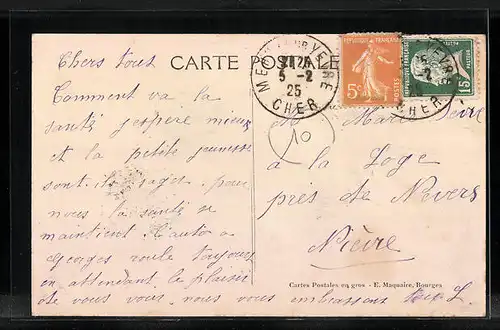 CARTE POSTALE
Chers tous
Comment va la
santé j'espère mieux
et la petite jeunesse
sont ils sages pour
nous la santé se
maintient l'auto a
Georges roule toujours
en attendant le plaisir
de vous voir nous vous embrassons tous
REPUBLIQUE FRANÇAISE
5c
POSTES
REPUBLIQUE FRANÇAISE
PASTEUR
15c
5-2
25
CHER
CHER
10
Marc
à la Loge
près de Nevers
Nièvre
Cartes Postales en gros - E. Maquaire, Bourges